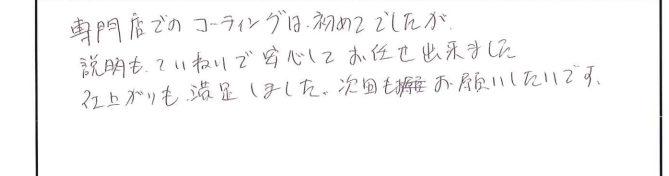 専門店でのコーティングは初めてでしたが
説明も、ていねいで安心してお任せ出来ました
仕上がりも満足しました。次回もお願いしたいです。